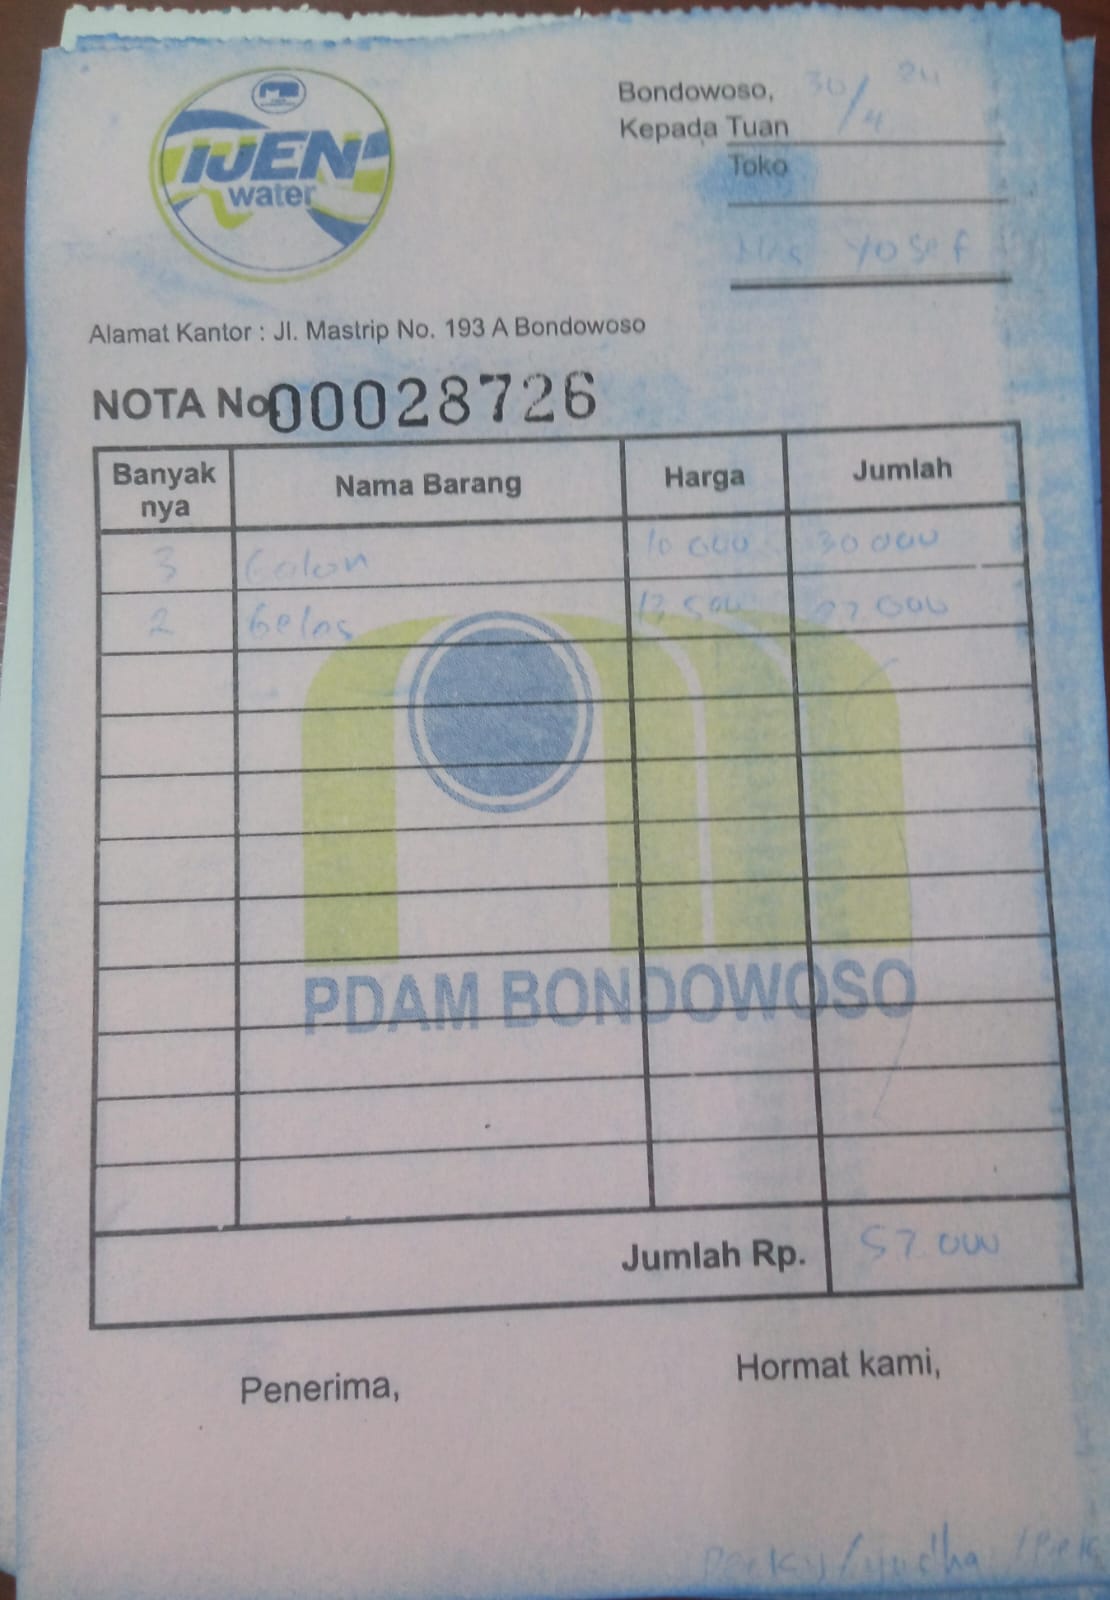 IJEN
water
Bondowoso, 30/4 24
Kepada Tuan
Toko
Mrs Yosef
Alamat Kantor : Jl. Mastrip No. 193 A Bondowoso
NOTA No. 00028726
Banyak nya Nama Barang Harga Jumlah
3 Galon 10 000 30 000
2 Gelas 13 500 27 000
PDAM BONDOWOSO
Jumlah Rp. 57 000
Penerima, Hormat kami,